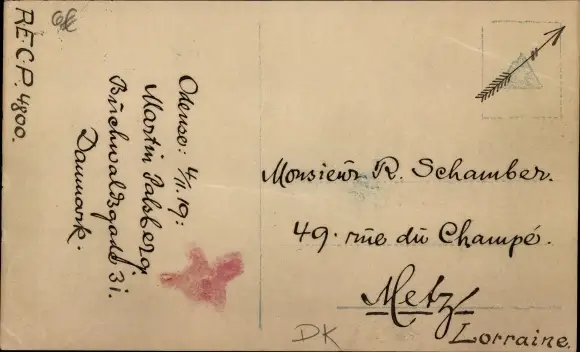 R.E.C.P. 4800.
Odense: 4/11.19:
Martin Jalsberg
Buchwaldsgade 31.
Danmark.
Monsieur R. Schamber.
49. rue du Champé.
Metz
Lorraine.
DK